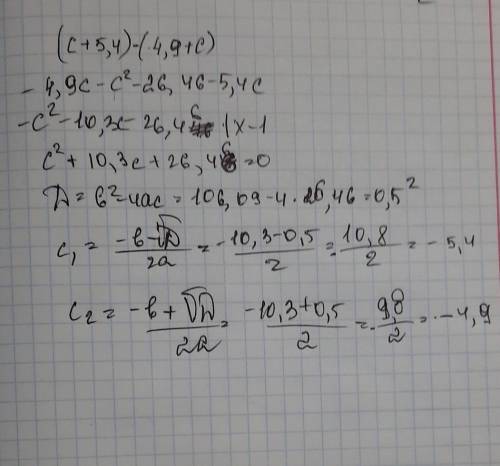 (c+5,4)·(-4,9+c)
-4,9c-c²-26,46-5,4c
-c²-10,3c-26,46 |x-1
c²+10,3c+26,46=0
D=в²-4ас=106,09-4·26,46=0,5²
c₁=(-в-√D)/2a=(-10,3-0,5)/2=-10,8/2=-5,4
c₂=(-в+√D)/2a=(-10,3+0,5)/2=-9,8/2=-4,9